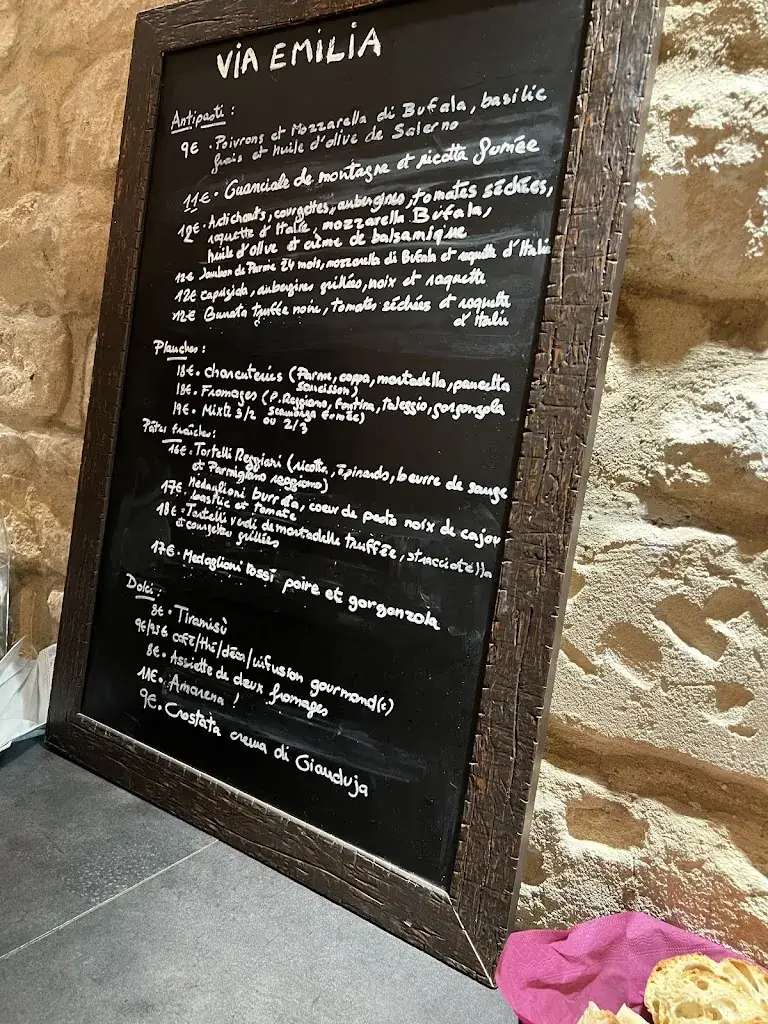 VIA EMILIA
Antipasti :
9€ • Poivrons et Mozzarella di Bufala, basilic
frais et huile d'olive de Salerno
11€ • Guanciale de montagne et ricotta fumée
12€ • Artichauts, courgettes, aubergines, tomates séchées,
roquette d'Italie, mozzarella Bufala,
huile d'olive et crème de balsamique
12€ Jambon de Parme 24 mois, mozzarella di Bufala et roquette d'Italie
12€ , aubergines grillées, noix et roquette
12€ Burrata truffe noire, tomates séchées et roquette
d'Italie
Planches :
18€ • charcuteries (Parme, coppa, mortadella, pancetta
saucisson)
18€ • Fromages (P. Reggiano, Fontina, taleggio, gorgonzola
scamorza fumée)
19€ • Mixte 3/2 ou 2/3
Pâtes fraîches :
16€ • Tortelli Reggiani (ricotta, épinards, beurre de sauge
et Parmigiano reggiano)
17€ • Medaglioni burrata, coeur de pesto noix de cajou
basilic et tomate
18€ • Tortelli verdi de mortadella truffée, stracciatella
et courgettes grillées
17€ • Medaglioni Rossi poire et gorgonzola
Dolci :
8€ • Tiramisù
9€/9,5€ café/thé/déca/infusion gourmand(e)
8€ • Assiette de deux fromages
11€ • Amarena !
9€ • Crostata crema di Gianduja